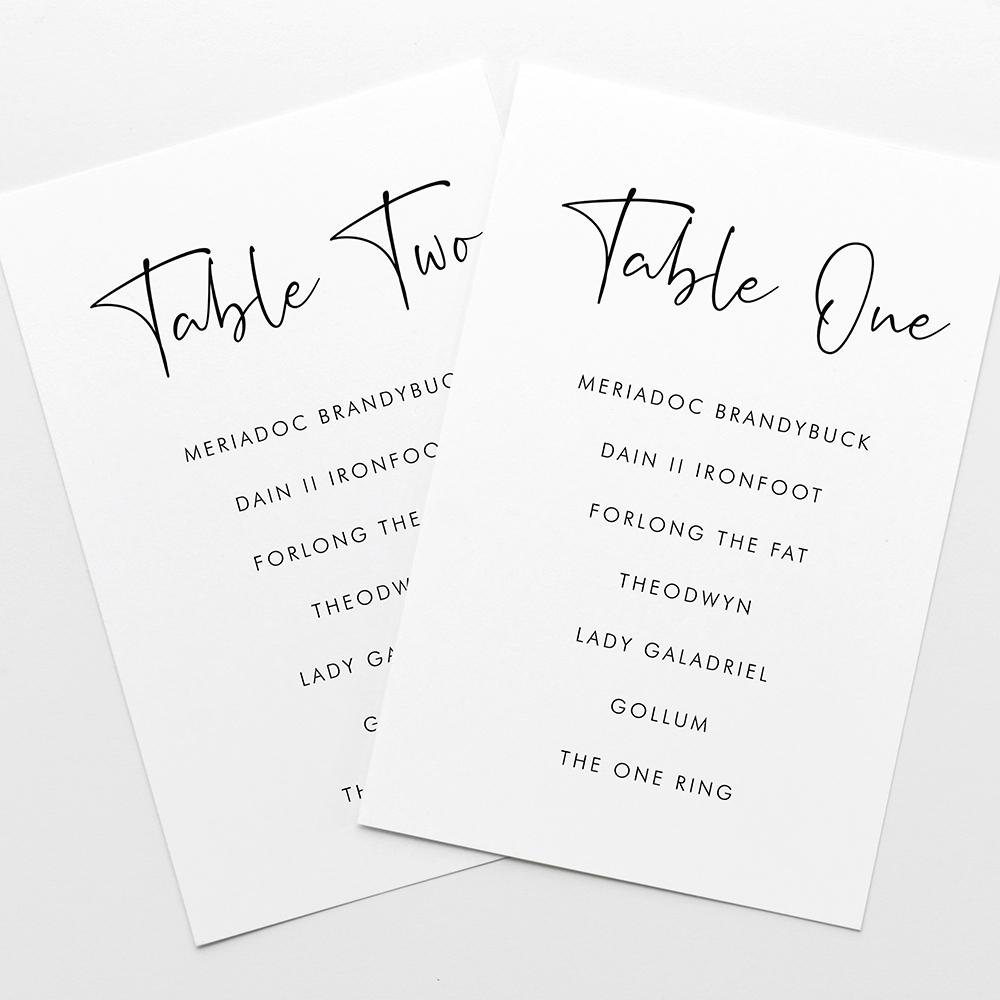 Table Two
MERIADOC BRANDYBUC
DAIN II IRONFOO
FORLONG THE
THEODW
LADY GA
G
TH
Table One
MERIADOC BRANDYBUCK
DAIN II IRONFOOT
FORLONG THE FAT
THEODWYN
LADY GALADRIEL
GOLLUM
THE ONE RING